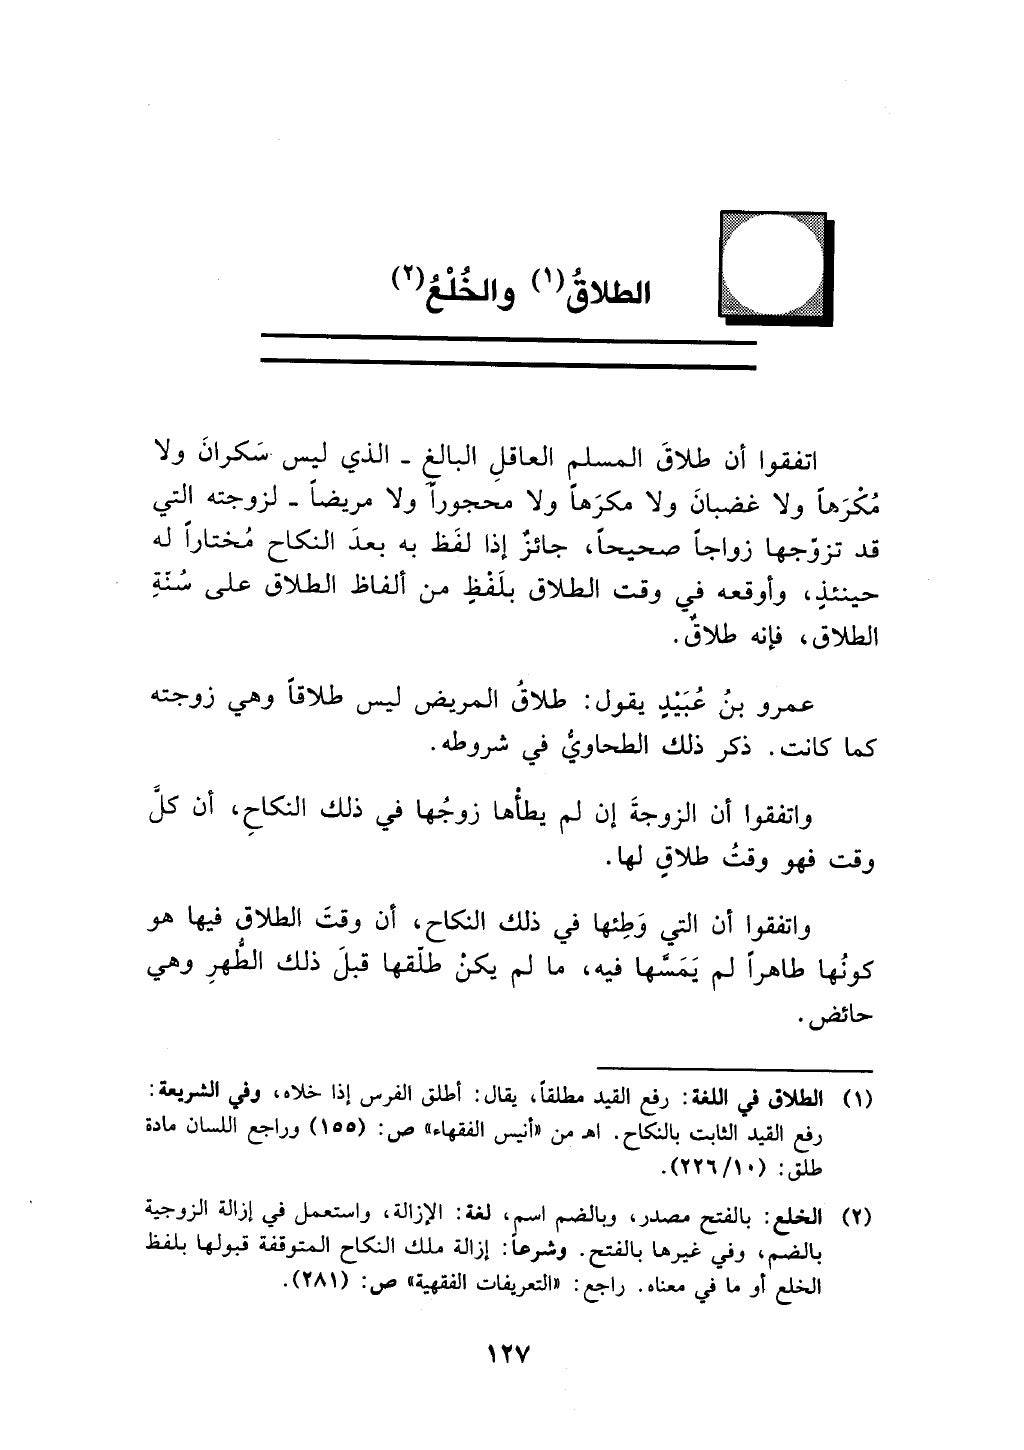 الطلاقُ(١) والخُلْعُ(٢)
اتفقوا أن طلاقَ المسلم العاقلِ البالغِ ـ الذي ليس سَكرانَ ولا
مُكْرَهاً ولا غضبانَ ولا مكرَهاً ولا محجوراً ولا مريضاً ـ لزوجته التي
قد تزوّجها زواجاً صحيحاً، جائزٌ إذا لفَظ به بعدَ النكاح مُختاراً له
حينئذٍ، وأوقعه في وقت الطلاق بلَفْظٍ من ألفاظ الطلاق على سُنّةِ
الطلاق، فإنه طلاقٌ.
عمرو بنُ عُبَيْدٍ يقول: طلاقُ المريض ليس طلاقاً وهي زوجته
كما كانت. ذكر ذلك الطحاويُّ في شروطه.
واتفقوا أن الزوجةَ إن لم يطأْها زوجُها في ذلك النكاحِ، أن كلَّ
وقت فهو وقتُ طلاقٍ لها.
واتفقوا أن التي وَطِئها في ذلك النكاح، أن وقتَ الطلاق فيها هو
كونُها طاهراً لم يَمَسَّها فيه، ما لم يكنْ طلّقها قبلَ ذلك الطُّهرِ وهي
حائض.
(١) الطلاق في اللغة: رفع القيد مطلقاً، يقال: أطلق الفرس إذا خلاه، وفي الشريعة:
رفع القيد الثابت بالنكاح. اهـ من «أنيس الفقهاء» ص: (١٥٥) وراجع اللسان مادة
طلق: (٢٢٦/١٠).
(٢) الخلع: بالفتح مصدر، وبالضم اسم، لغة: الإزالة، واستعمل في إزالة الزوجية
بالضم، وفي غيرها بالفتح. وشرعاً: إزالة ملك النكاح المتوقفة قبولها بلفظ
الخلع أو ما في معناه. راجع: «التعريفات الفقهية» ص: (٢٨١).
١٢٧